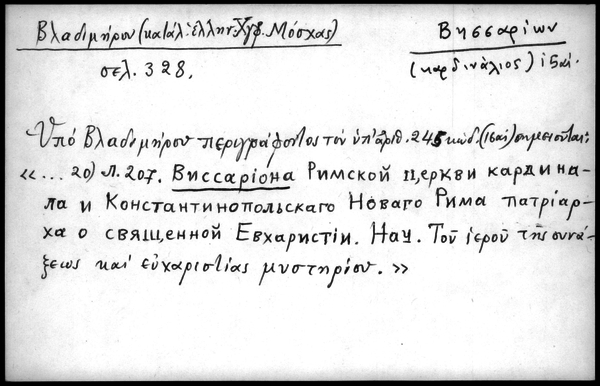 Βλαδιμήρου (κατάλ. ἑλλην. Χγφ. Μόσχας)
Βησσαρίων
σελ. 328.
(καρδινάλιος) ι5 αἰ.
Ὑπό Βλαδιμήρου περιγράφοντος τόν ὑπ' ἀριθ. 245 κώδ. (16 αἰ) σημειοῦται:
«... 20) Л. 207. Виссаріона Римской церкви кардина-
ла и Константинопольскаго Новаго Рима патріар-
ха о священной Евхаристіи. Нач. Τοῦ ἱεροῦ τῆς συνά-
ξεως καί εὐχαριστίας μυστηρίου. »